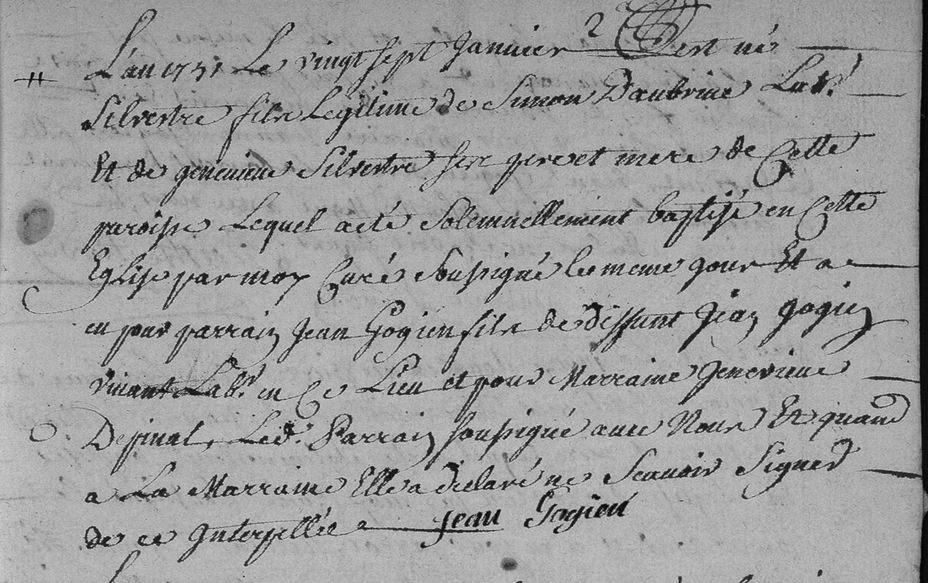 L'an 1751 Le vingt sept Janvier est né
Silvestre fils Legitime de Simon Daubrive Lab.r
Et de genevieve Silvestre ses pere et mere de Cette
paroisse Lequel a eté Solemnellement baptisé en Cette
Eglise par moy Curé Soussigné le meme jour Et a
eu pour parrain Jean Gogien fils de deffunt Jean gogien
vivant Lab.r en Ce Lieu et pour Marraine Genevieve
Depinal, Led. Parrain soussigné avec Nous Et quand
a La Marraine Elle a déclaré ne Scavoir Signer
de ce Interpellée Jean Gogien